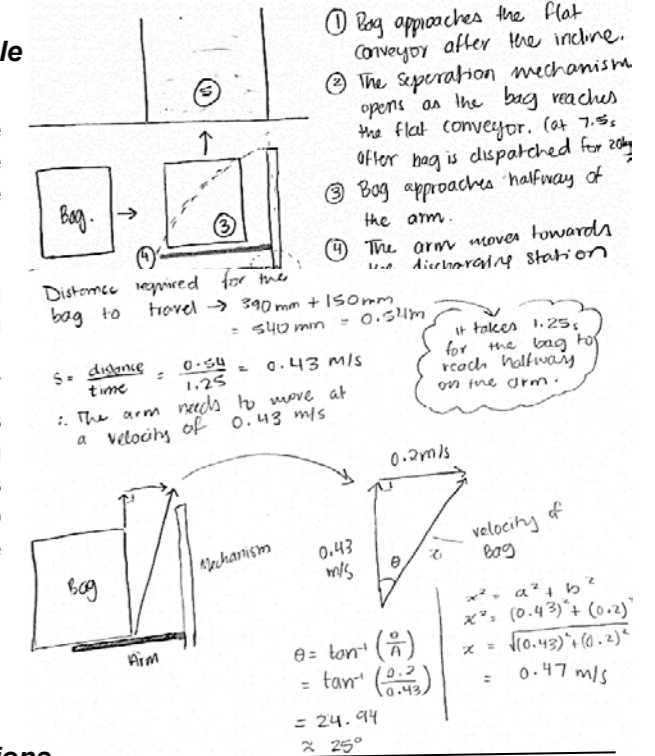 le
① Bag approaches the flat
conveyor after the incline.
② The seperation mechanism
opens as the bag reaches
the flat conveyor. (at 7.5s
after bag is dispatched for 20kg
③ Bag approaches halfway of
the arm.
④ The arm moves towards
the discharging station
⑤
Bag.
③
④
Distance required for the
bag to travel → 390mm + 150mm
= 540mm = 0.54m
it takes 1.25s
for the bag to
reach halfway
on the arm.
S = distance/time = 0.54/1.25 = 0.43 m/s
∴ The arm needs to move at
a velocity of 0.43 m/s
Bag
Mechanism
Arm
0.2m/s
0.43
m/s
θ
x
velocity of
Bag
θ = tan⁻¹ (O/A)
= tan⁻¹ (0.2/0.43)
= 24.94
≈ 25°
x² = a² + b²
x² = (0.43)² + (0.2)²
x = √(0.43)² + (0.2)²
= 0.47 m/s